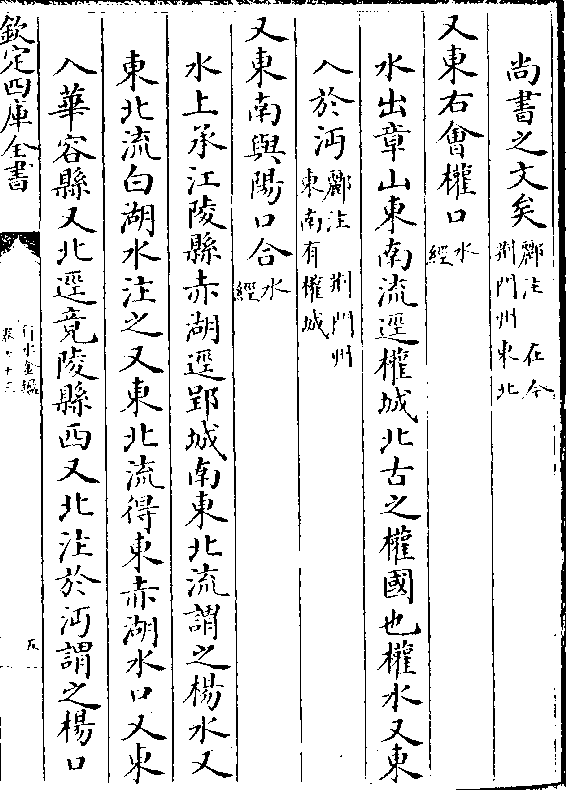 尚書之文矣酈注　在今
荆門州東北
又東右會權口水
經
水出章山東南流逕權城北古之權國也權水又東
入於沔酈注　荆門州
東南有權城
又東南與陽口合水
經
水上承江陵縣赤湖逕郢城南東北流謂之楊水又
東北流白湖水注之又東北流得東赤湖水口又東
入華容縣又北逕竟陵縣西又北注於沔謂之楊口
欽定四庫全書
行水金鑑
五